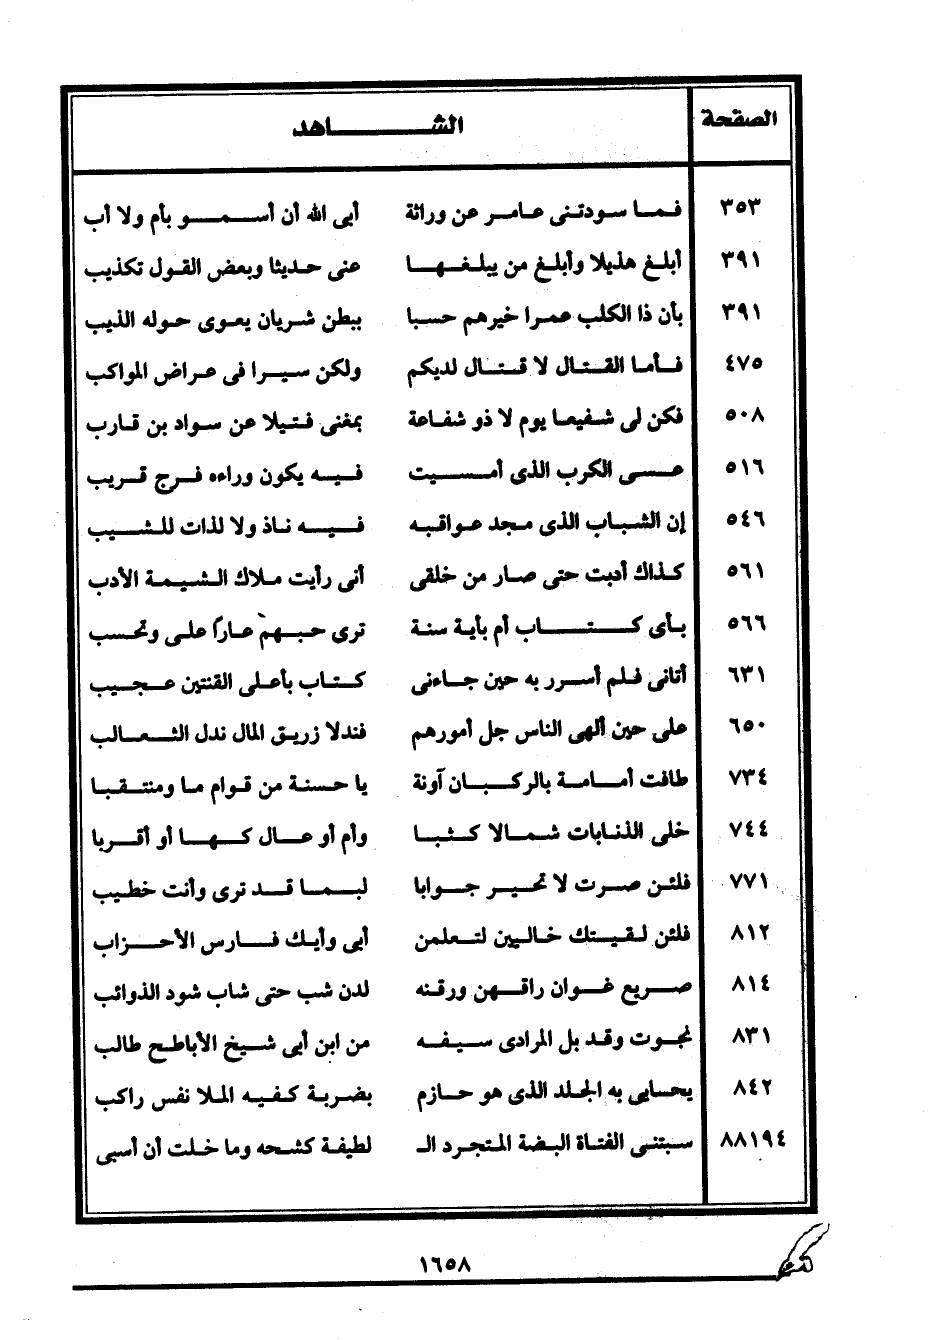 الصفحة الشاهد
٣٥٣ فما سودتنى عامر عن وراثة أبى الله أن أسمو بأم ولا أب
٣٩١ أبلغ هذيلا وأبلغ من يبلغها عنى حديثا وبعض القول تكذيب
٣٩١ بأن ذا الكلب عمرا خيرهم حسبا ببطن شريان يعوى حوله الذيب
٤٧٥ فأما القتال لا قتال لديكم ولكن سيرا فى عراض المواكب
٥٠٨ فكن لى شفيعا يوم لا ذو شفاعة بمغنى فتيلا عن سواد بن قارب
٥١٦ عسى الكرب الذى أمسيت فيه يكون وراءه فرج قريب
٥٤٦ إن الشباب الذى مجد عواقبه فيه ناذ ولا لذات للشيب
٥٦١ كذاك أدبت حتى صار من خلقى أنى رأيت ملاك الشيمة الأدب
٥٦٦ بأى كتاب أم بأية سنة ترى حبهم عارا على وتحسب
٦٣١ أتانى فلم أسرر به حين جاءنى كتاب بأعلى القنتين عجيب
٦٥٠ على حين ألهى الناس جل أمورهم فندلا زريق المال ندل الثعالب
٧٣٤ طافت أمامة بالركبان آونة يا حسنة من قوام ما ومنتقبا
٧٤٤ خلى الذنابات شمالا كثبا وأم أو عال كها أو أقربا
٧٧١ فلئن صرت لا تحير جوابا لبما قد ترى وأنت خطيب
٨١٢ فلئن لقيتك خاليين لتعلمن أبى وأيك فارس الأحزاب
٨١٤ صريع غوان راقهن ورقنه لدن شب حتى شاب شود الذوائب
٨٣١ نجوت وقد بل المرادى سيفه من ابن أبى شيخ الأباطح طالب
٨٤٢ يحسابى به الجلد الذى هو حازم بضربة كفيه الملا نفس راكب
٨٨١٩٤ سبتنى الفتاة البضة المتجرد الـ لطيفة كشحه وما خلت أن أسبى
١٦٥٨